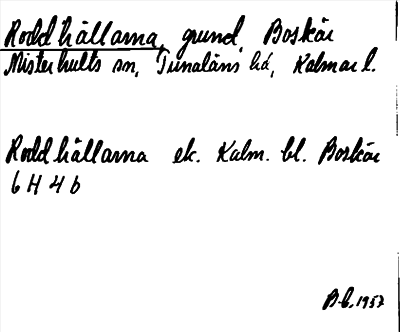 Roddhällarna, grund, Boskär
Misterhults sn, Tunaläns hd, Kalmar l.
Roddhällarna ek. Kalm. bl. Boskär
6 H 4 b
1957